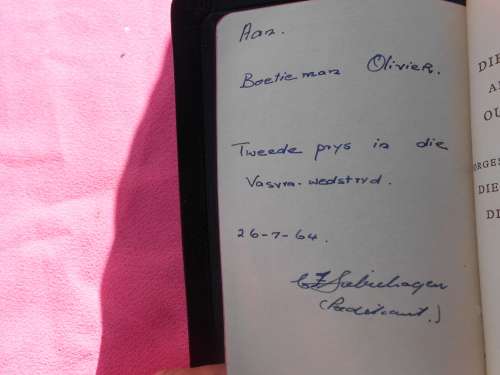 Aan.
Boetieman Olivier.
Tweede prys in die
Vasvra-wedstryd.
26-7-64.
(Predikant.)
DIE
OU
ORGES
DIE